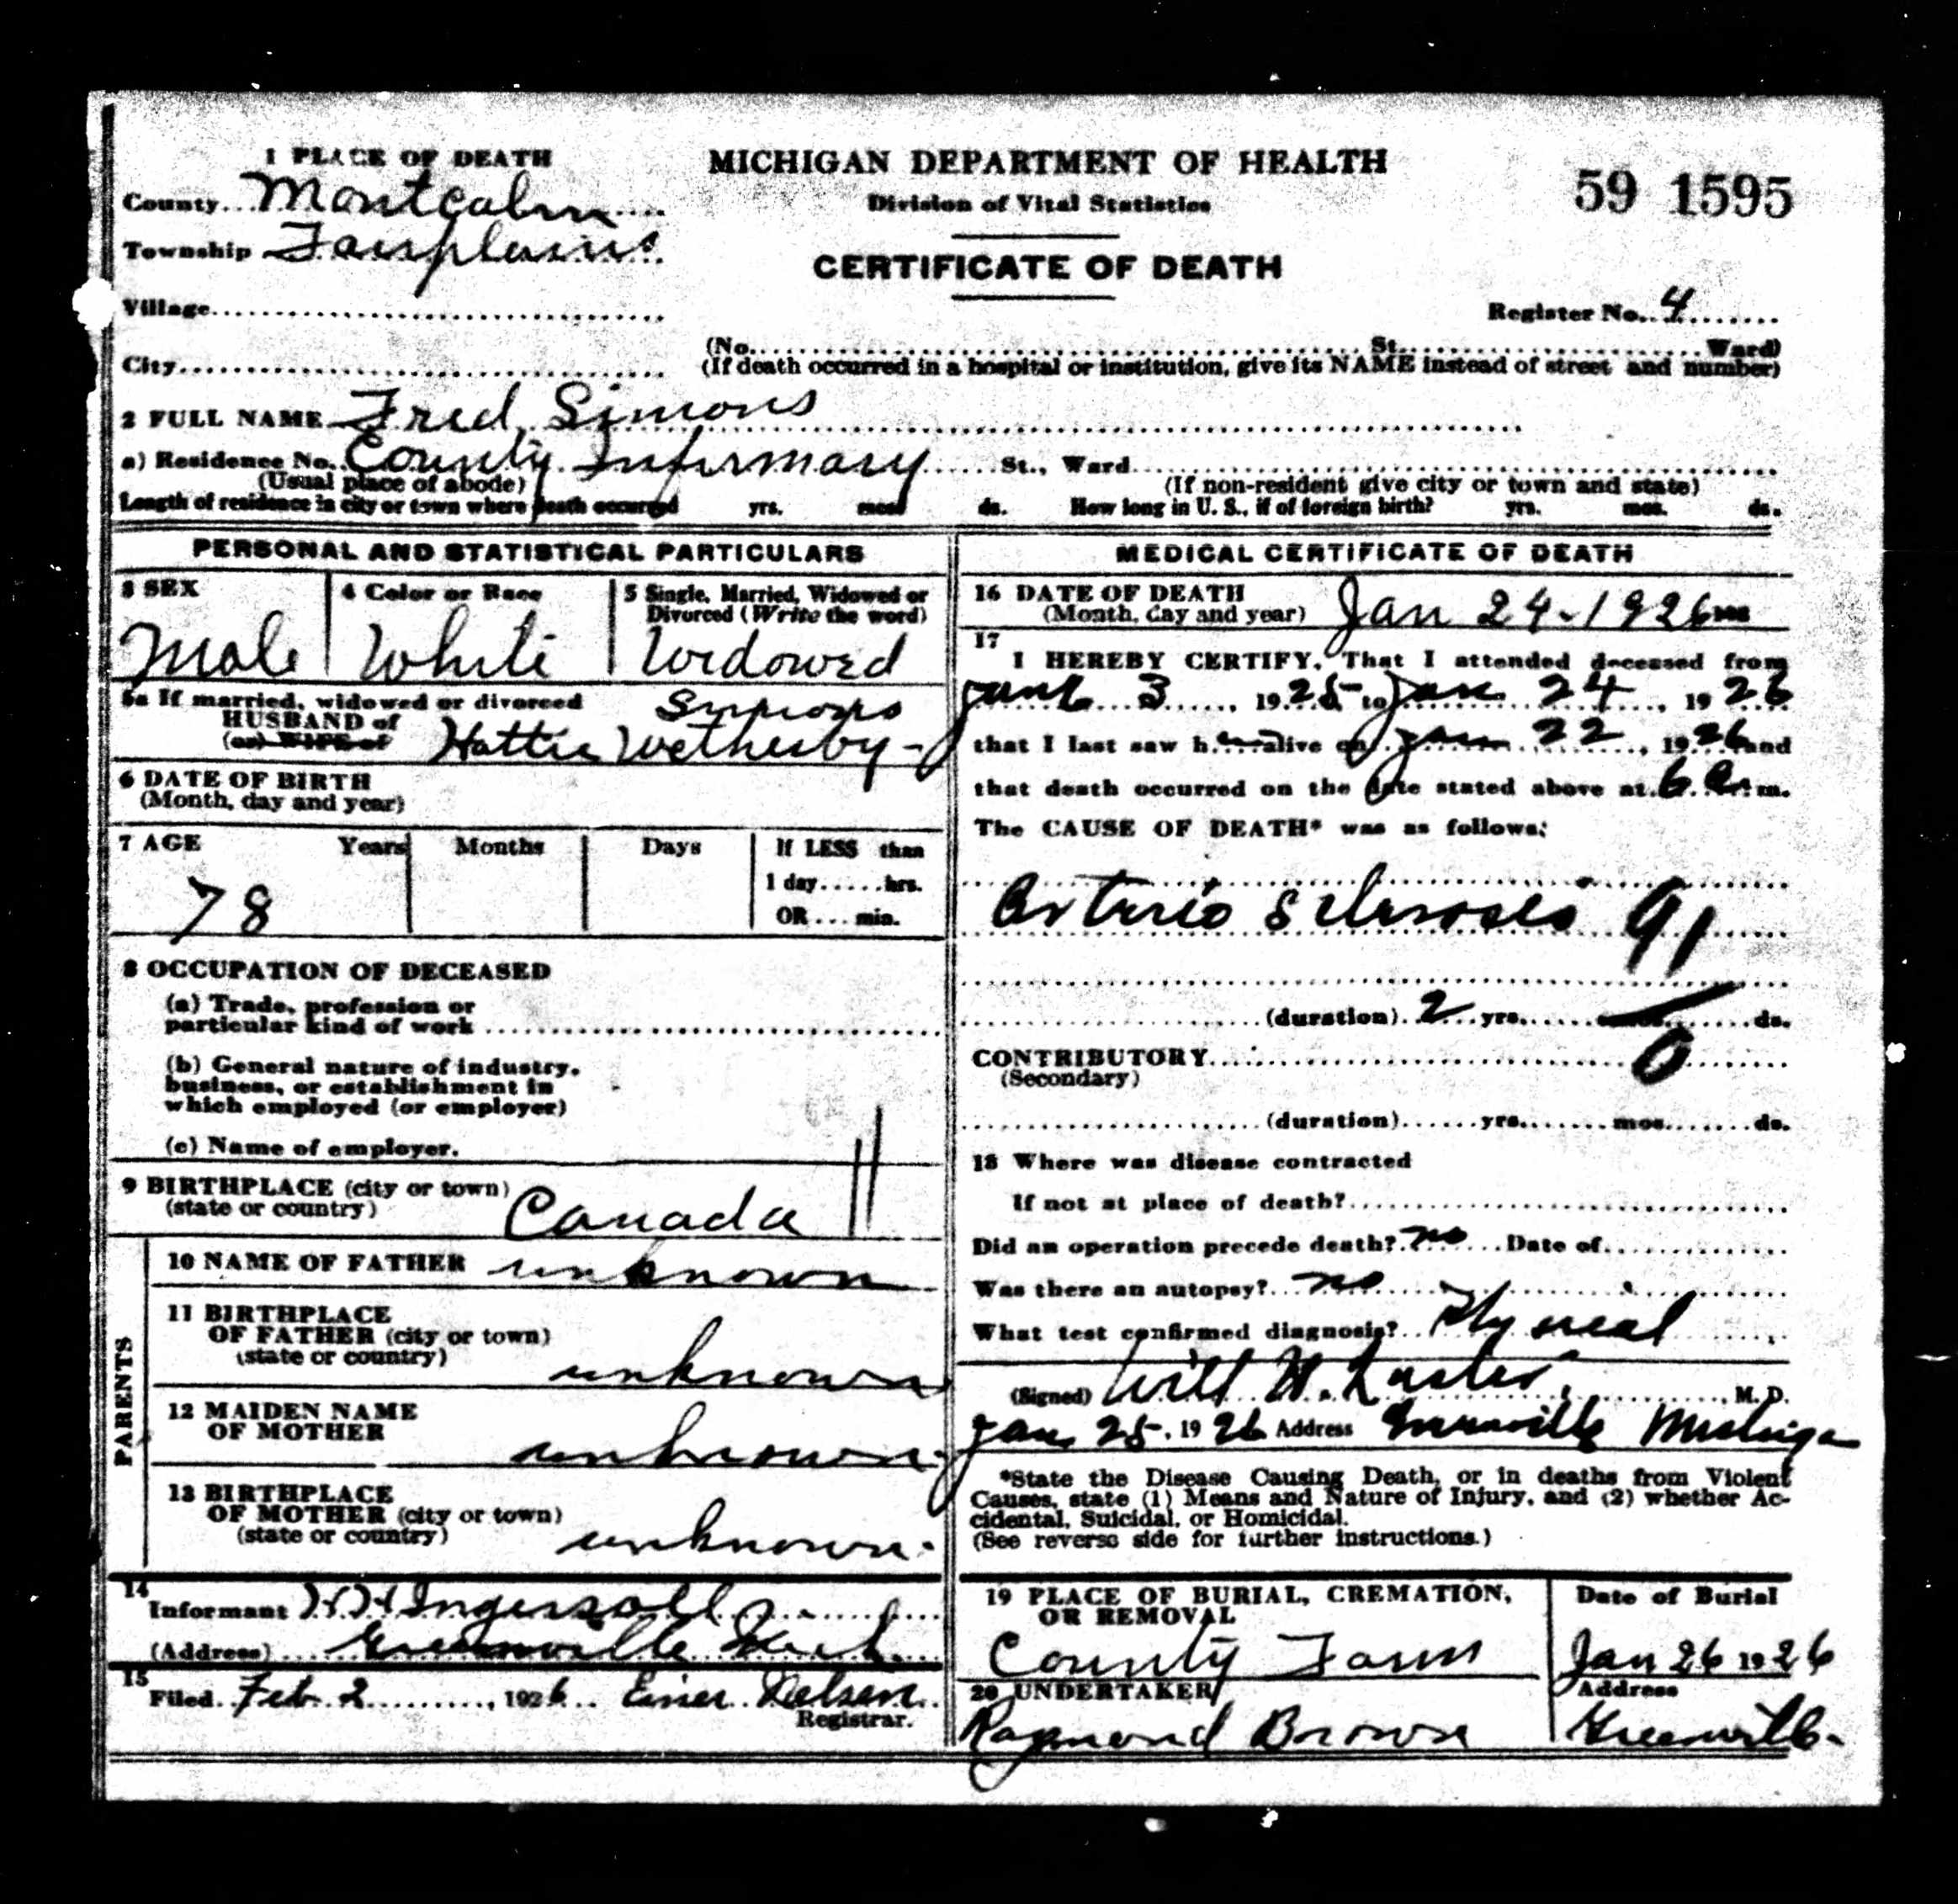 1 PLACE OF DEATH
MICHIGAN DEPARTMENT OF HEALTH
Division of Vital Statistics
59 1595
County Montcalm
Township Fairplains
CERTIFICATE OF DEATH
Village
Register No. 4
City
(No. St. Ward)
(If death occurred in a hospital or institution, give its NAME instead of street and number)
2 FULL NAME Fred Simons
a) Residence No. County Infirmary St., Ward
(Usual place of abode)
(If non-resident give city or town and state)
Length of residence in city or town where death occurred yrs. mos. ds. How long in U. S., if of foreign birth? yrs. mos. ds.
PERSONAL AND STATISTICAL PARTICULARS
3 SEX
Male
4 Color or Race
White
5 Single, Married, Widowed or
Divorced (Write the word)
Widowed
5a If married, widowed or divorced
HUSBAND of
(or) WIFE of
Simons
Hattie Wethesby-
6 DATE OF BIRTH
(Month, day and year)
7 AGE Years Months Days
78
If LESS than
1 day......hrs.
OR....min.
8 OCCUPATION OF DECEASED
(a) Trade, profession or
particular kind of work
(b) General nature of industry,
business, or establishment in
which employed (or employer)
(c) Name of employer.
9 BIRTHPLACE (city or town)
(state or country)
Canada
PARENTS
10 NAME OF FATHER unknown
11 BIRTHPLACE
OF FATHER (city or town)
(state or country)
unknown
12 MAIDEN NAME
OF MOTHER
unknown.
13 BIRTHPLACE
OF MOTHER (city or town)
(state or country)
unknown.
14
Informant Ingersoll
(Address) Greenville Mich.
15
Filed Feb. 2, 1926 Einer Nelsen
Registrar.
MEDICAL CERTIFICATE OF DEATH
16 DATE OF DEATH
(Month, day and year) Jan 24-1926
17
I HEREBY CERTIFY, That I attended deceased from
June 3, 1925 to Jan 24, 1926
that I last saw h alive on Jan 22, 1926 and
that death occurred on the date stated above at 6 a. m.
The CAUSE OF DEATH* was as follows:
Arterio Sclerosis 91
(duration) 2 yrs. mos. ds.
CONTRIBUTORY 0
(Secondary)
(duration) yrs. mos. ds.
18 Where was disease contracted
If not at place of death?
Did an operation precede death? no Date of
Was there an autopsy? no
What test confirmed diagnosis? Physical
(Signed) Will H. , M. D.
Jan 25, 1926 Address Greenville Michigan
*State the Disease Causing Death, or in deaths from Violent
Causes, state (1) Means and Nature of Injury, and (2) whether Ac-
cidental, Suicidal, or Homicidal.
(See reverse side for further instructions.)
19 PLACE OF BURIAL, CREMATION,
OR REMOVAL
County Farm
Date of Burial
Jan 26 1926
20 UNDERTAKER
Raymond Brown
Address
Greenville.